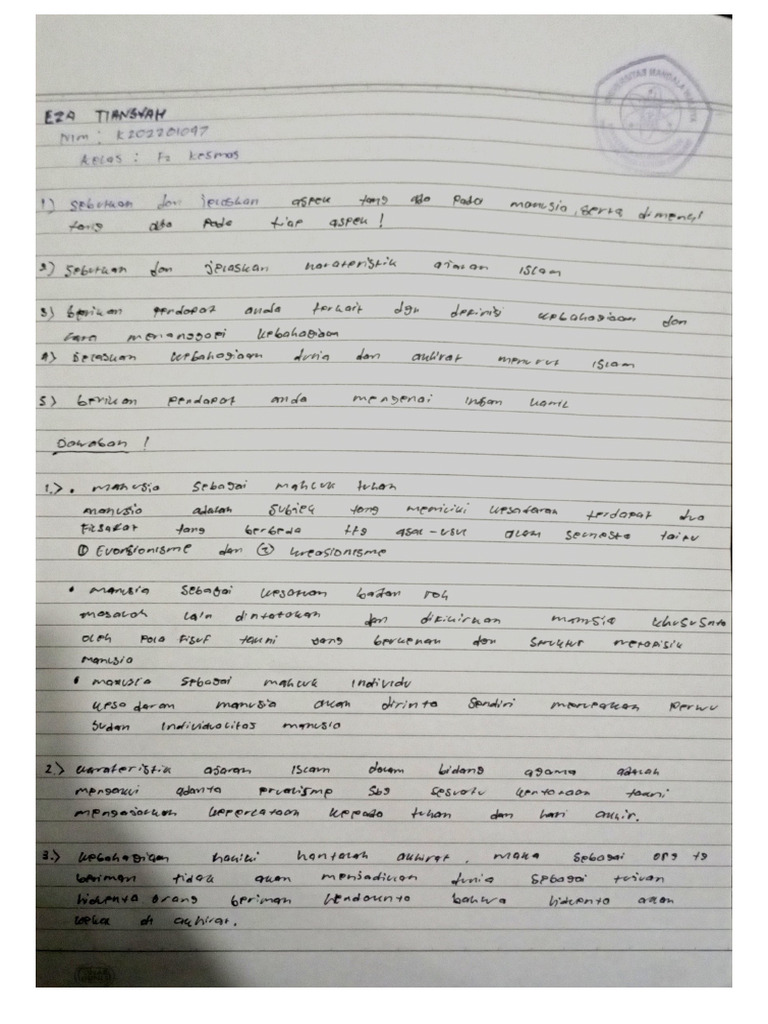 EZA TIANSYAH
Nim : K202201097
Kelas : F2 Kesmas
UNIVERSITAS MANDALA
1) Sebutkan dan jelaskan aspek yang ada pada manusia, serta dimensi
yang ada pada tiap aspek !
2) Sebutkan dan jelaskan karateristik ajaran islam
3) berikan pendapat anda terkait dgn definisi kebahagiaan dan
cara menanggapi kebahagiaan
4) Jelaskan kebahagiaan dunia dan akhirat menurut islam
5) berikan pendapat anda mengenai insan kamil
Jawaban !
1.) • Manusia sebagai mahluk tuhan
manusia adalah subjek yang memiliki kesadaran terdapat dua
filsafat yang berbeda ttg asal-usul alam semesta yaitu
① Evorsionisme dan ② kreasionisme
• Manusia sebagai kesatuan badan roh
masalah lain dinyatakan dan difikirkan manusia khususnya
oleh para filsuf yakni yang berkenan dan struktur metafisik
manusia
• manusia sebagai mahluk individu
kesadaran manusia akan dirinya sendiri merupakan perwu
judan individualitas manusia
2.) karateristik ajaran islam dalam bidang agama adalah
mengakui adanya prualisme sbg sesuatu kenyataan yakni
mengajarkan kepercayaan kepada tuhan dan hari akhir.
3.) kebahagiaan hakiki hanyalah akhirat, maka sebagai org yg
beriman tidak akan menjadikan dunia sebagai tujuan
hidupnya orang beriman hendaknya bahwa hidupnya akan
kekal di akhirat.